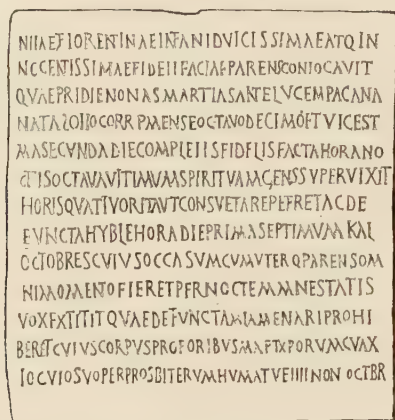 NIIAEFIORENTINAEINFANIDVICISSIMAEATQIN
NCCENTISSIMAEFIDEIIFACIAEPARENSCONIOCAVIT
QVAEPRIDIENONASMARTIASANTELVCEMPACANA
NATAZOIIOCORRPMENSEOCTAVODECIMOETVICEST
MASECVNDADIECOMPLEIISFIDELISFACTAHORANO
CTISOCTAVAVITIMVMSPIRITVAMGENSSVPERVIXIT
HORISQVATIVORITAVTCONSVETAREPEFRETACDE
EVNCTAHYBLEHORADIEPRIMASEPTIMVMKAL
OCTOBRESCVIVSOCCASVMCVMVTERQPARENSOM
NIMOMENTOFIERETPFRNOCTEMMNESTATIS
VOXFXTITITQVAEDEFVNCTAMIAMENARIPROHI
BERETCVIVSCORPVSPROFORIBVSMAPTXPORVMCVAX
IOCVIOSVOPERPROSBITERVMHVMATVEIIIINONOCTBR